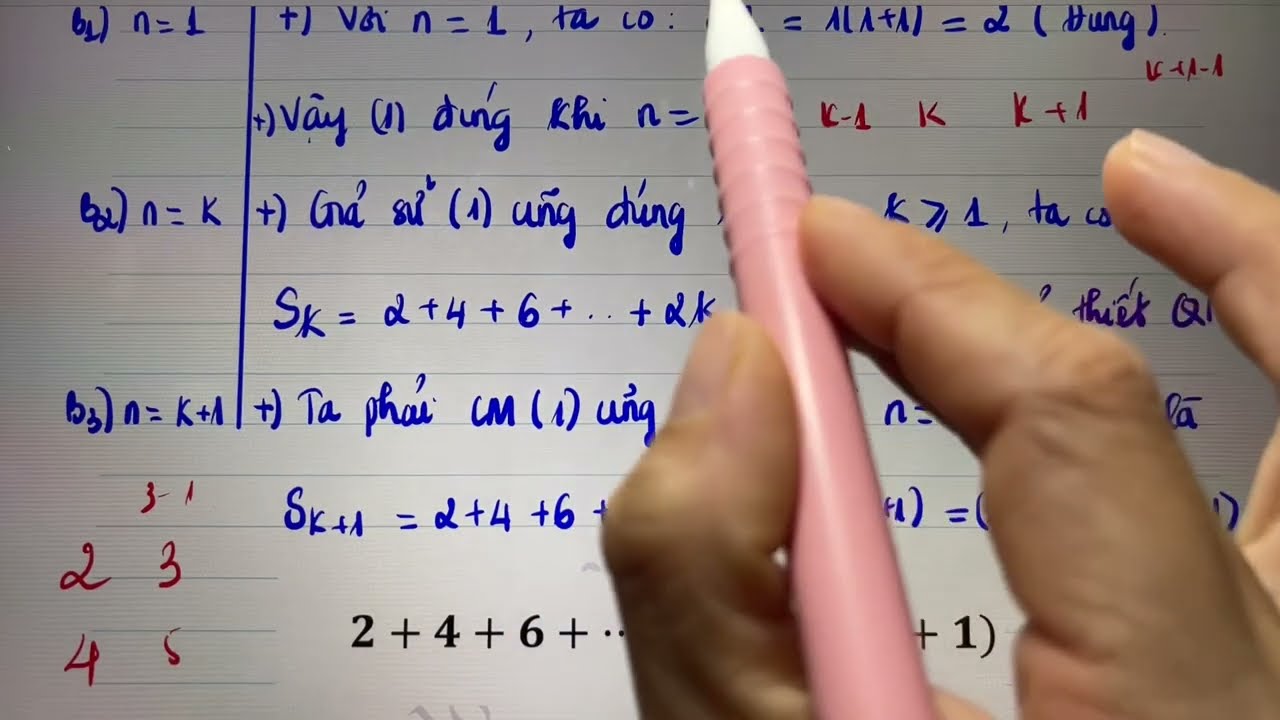 B1) n = 1 +) Với n = 1, ta có: = 1(1+1) = 2 (Đúng).
K+1-1
+) Vậy (1) đúng khi n = K-1 K K+1
B2) n = K +) Giả sử (1) cũng đúng K ⩾ 1, ta có
SK = 2 + 4 + 6 + .. + 2K thiết
B3) n = K+1 +) Ta phải CM (1) cũng n = là
3-1
SK+1 = 2+4+6+ +1) = ( 1)
2 3
2 + 4 + 6 + ·· + 1)
4 5